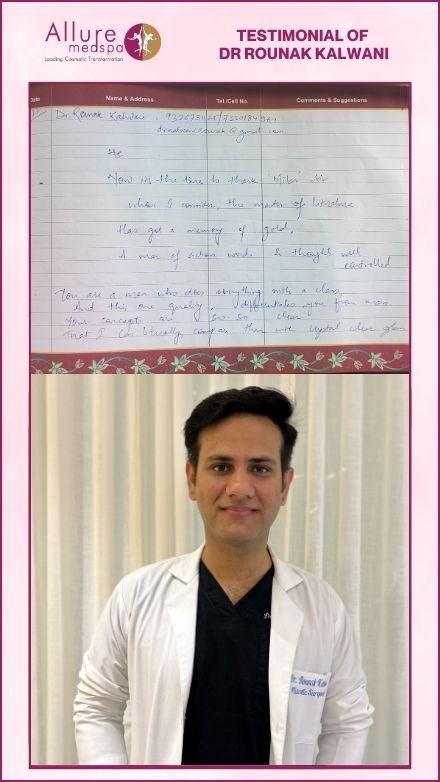 Allure
medspa
Leading Cosmetic Transformation
TESTIMONIAL OF
DR ROUNAK KALWANI
Date Name & Address Tel./Cell No. Comments & Suggestions
Dr. Rounak Kalwani
Now its the time to thank 'Milan' Sir
whom I consider, the mentor of literature
Has got a memory of gold,
A man of actions words & thoughts well
controlled
You are a man who does everything with a class
And this one quality, differentiates you from mass.
Your concepts are so-so clear
That I can literally compare them with crystal clear glass
Dr. Rounak
Plastic Surgeon